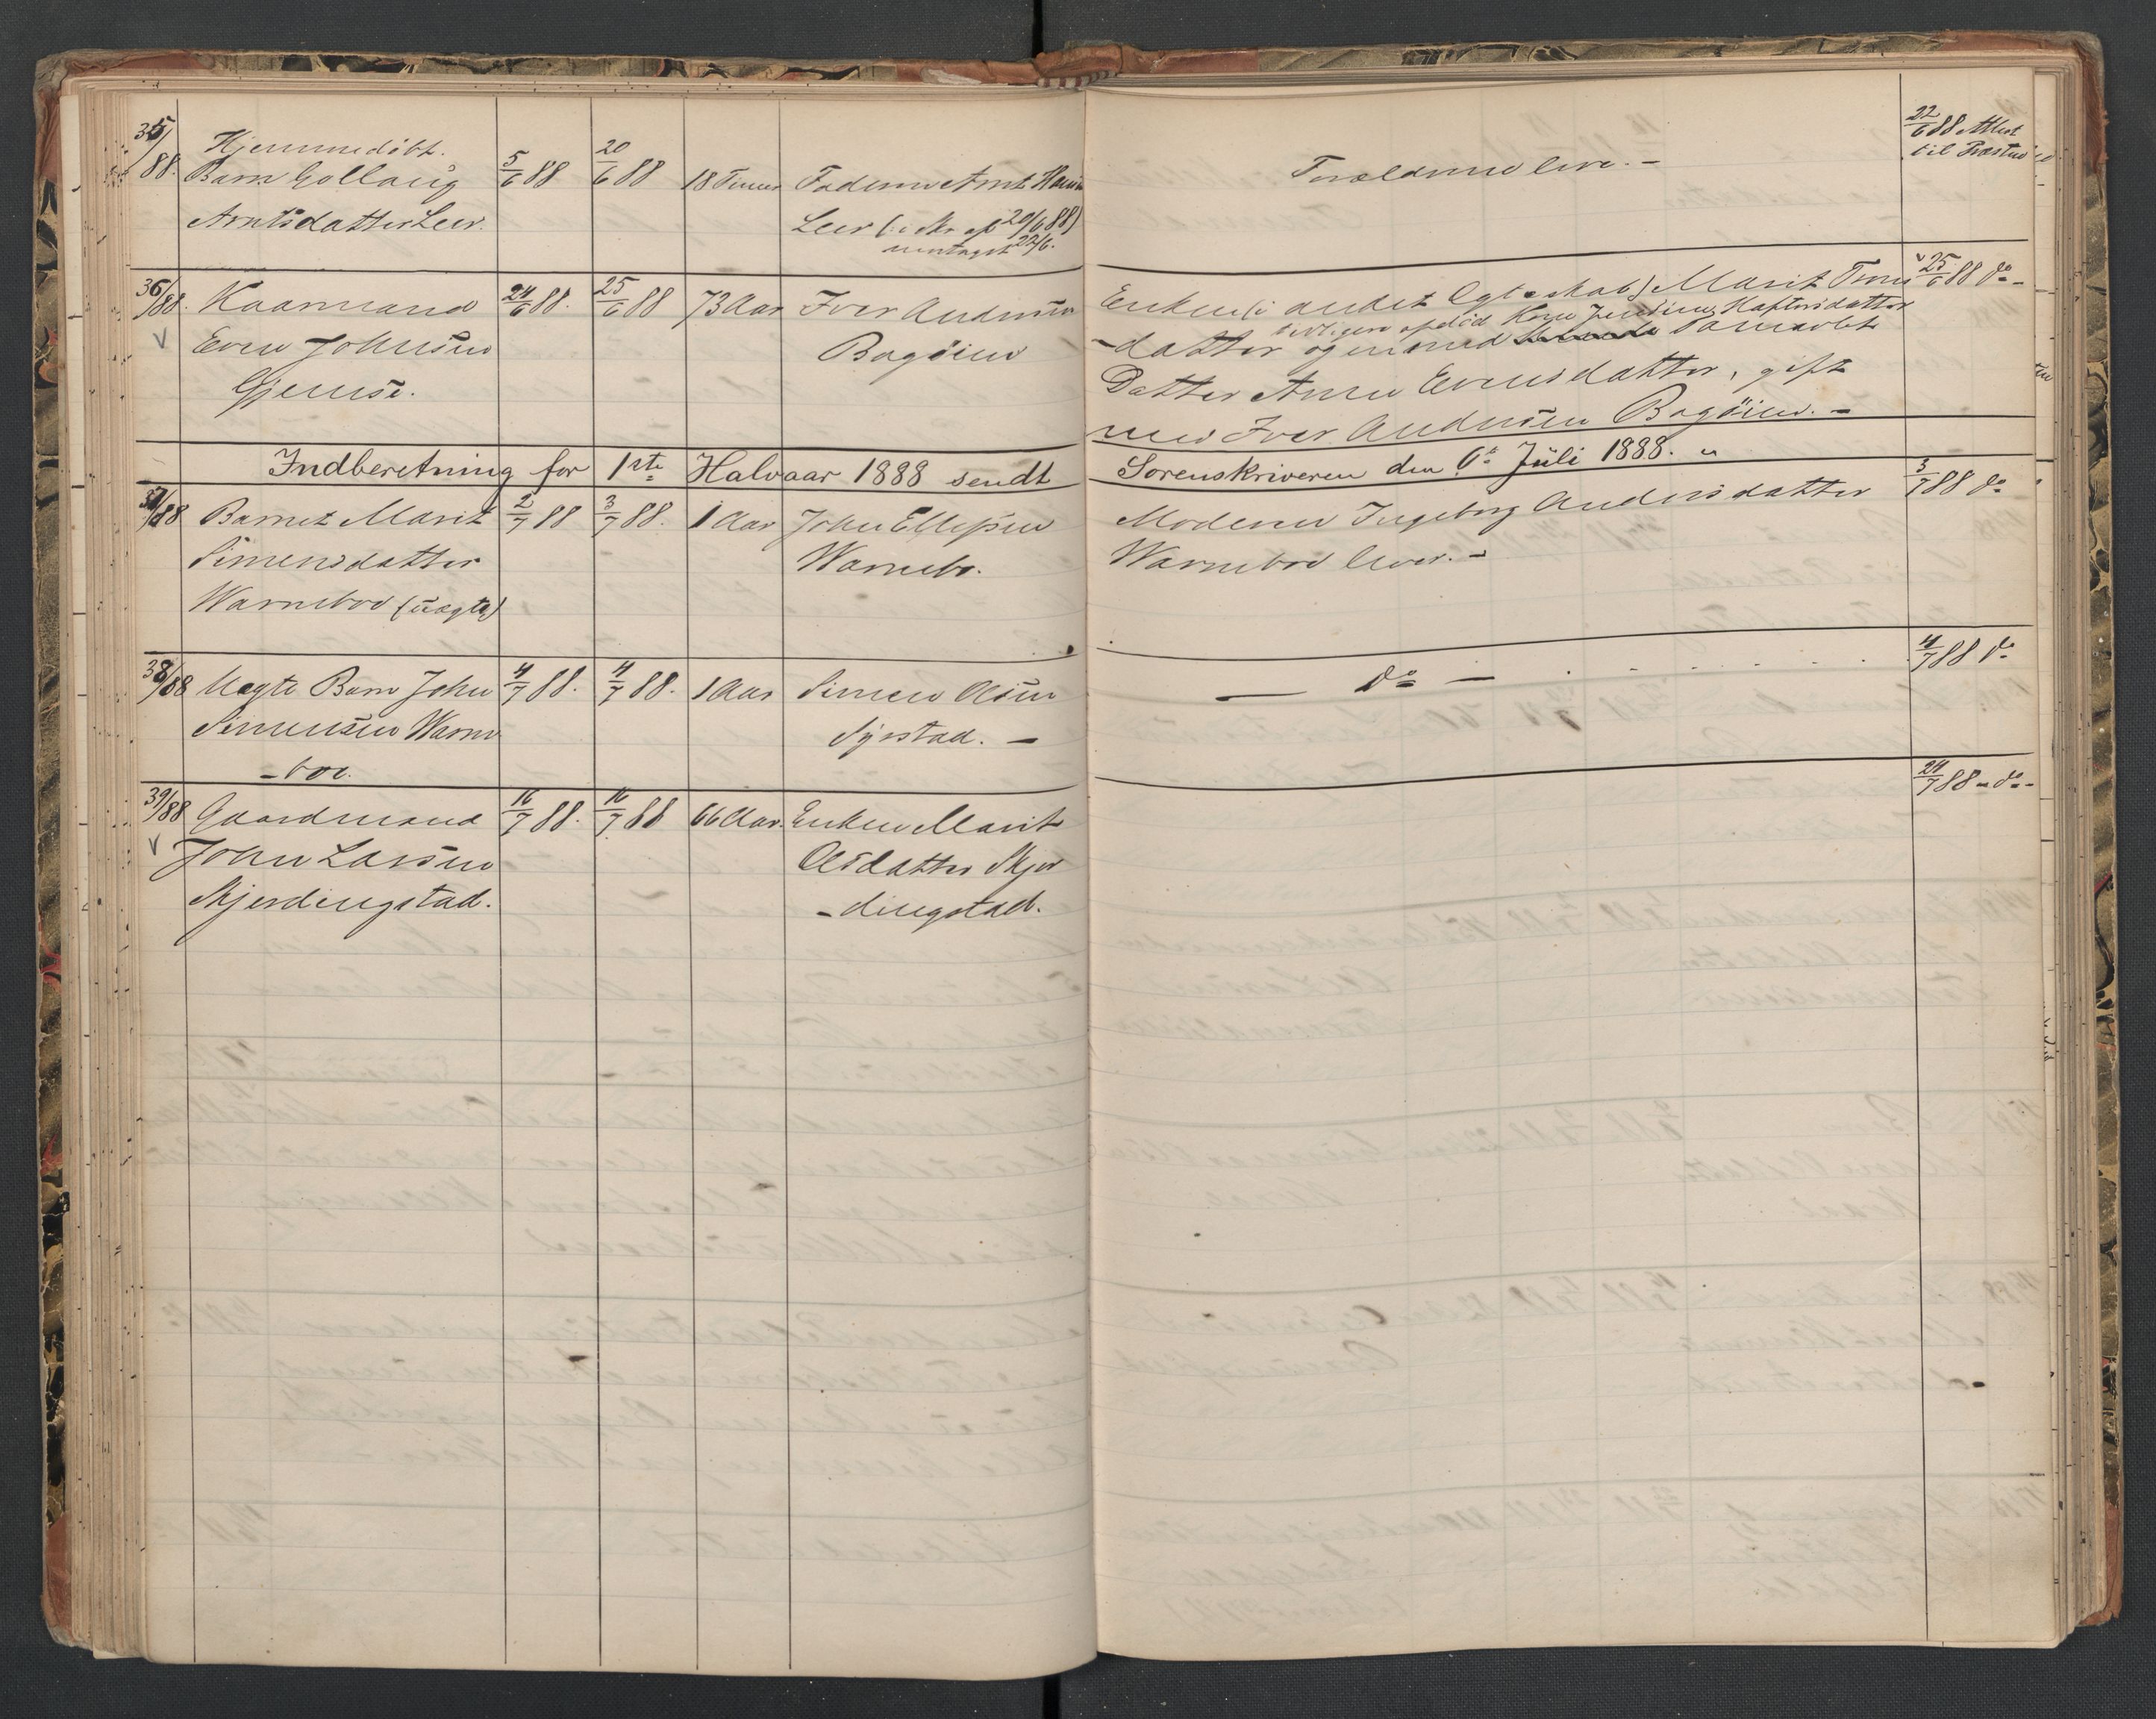 35/88. Hjemmedöbt.
Barn Gollaug
Arntsdatter Leer.
5/6 88
20/6 88
18 Timer
Faderen Arnt
Leer (: Skr af 20/6 88)
mottaget 22/6.
Forældrene leve. -
22/6 88 Attest
til Præsten
36/88. Kaarmand
Even Johnsen
Gjemse.
24/6 88.
25/6 88
73 Aar
Iver Andersen
Bagöien
Enken (i andet Egteskab) Marit
tidligere afdöd Haftorsdatter
-datter og en med
Datter Anne Evensdatter, gift
med Iver Andersen Bagöien. -
25/6 88 do -
Indberetning for 1ste Halvaar 1888 sendt Sorenskriveren den 6te Juli 1888.
37/88 Barnet Marit
Simensdatter
Warneboe (uægte)
2/7 88
3/7 88.
1 Aar
John Ellefsen
Warnebo.
Moderen Ingeborg Andersdatter
Warneboe lever. -
3/7 88 do
38/88 Uægte Barn John
Simensen Warne
-boe.
4/7 88.
4/7 88.
1 Aar
Simen Olsen
Syrstad. -
- do -
4/7 88 do
39/88 Gaardmand
John Larsen
Skjerdingstad.
16/7 88.
16/7 88
66 Aar.
Enken Marit
Olsdatter Skjer
-dingstad.
24/7 88 - do -